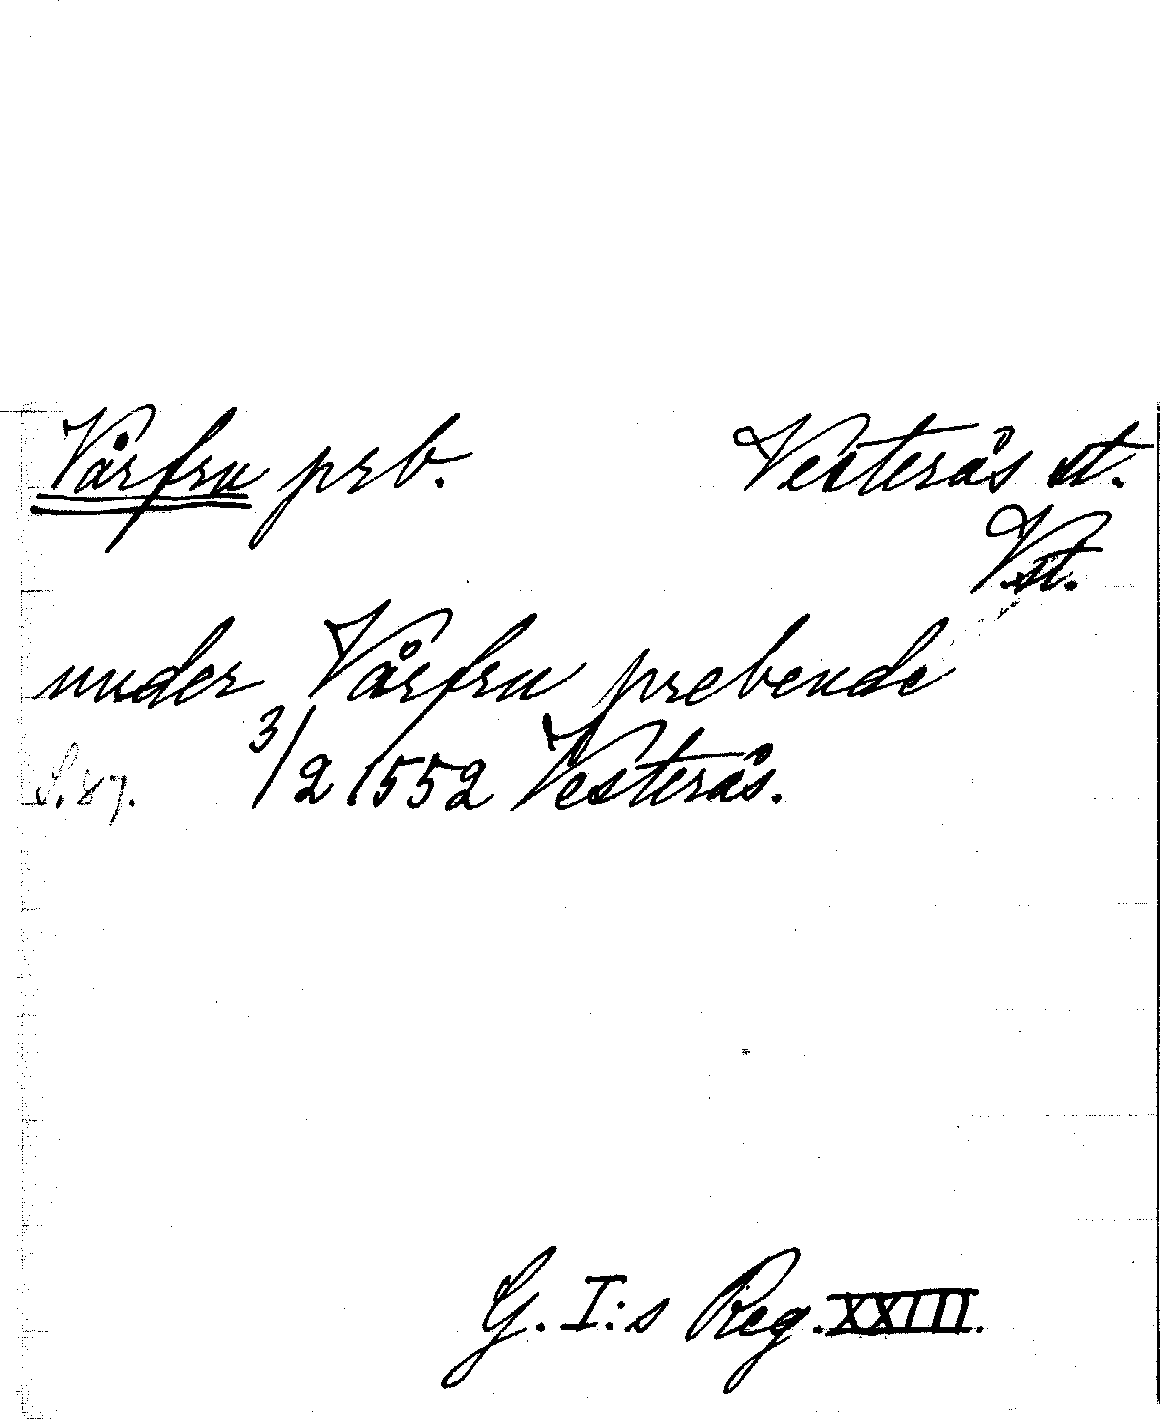 Vårfru prb. Vesterås st.
Vst.
under Vårfru prebende
S. 87. 3/2 1552 Vesterås.
G. I:s Reg. XXIII.